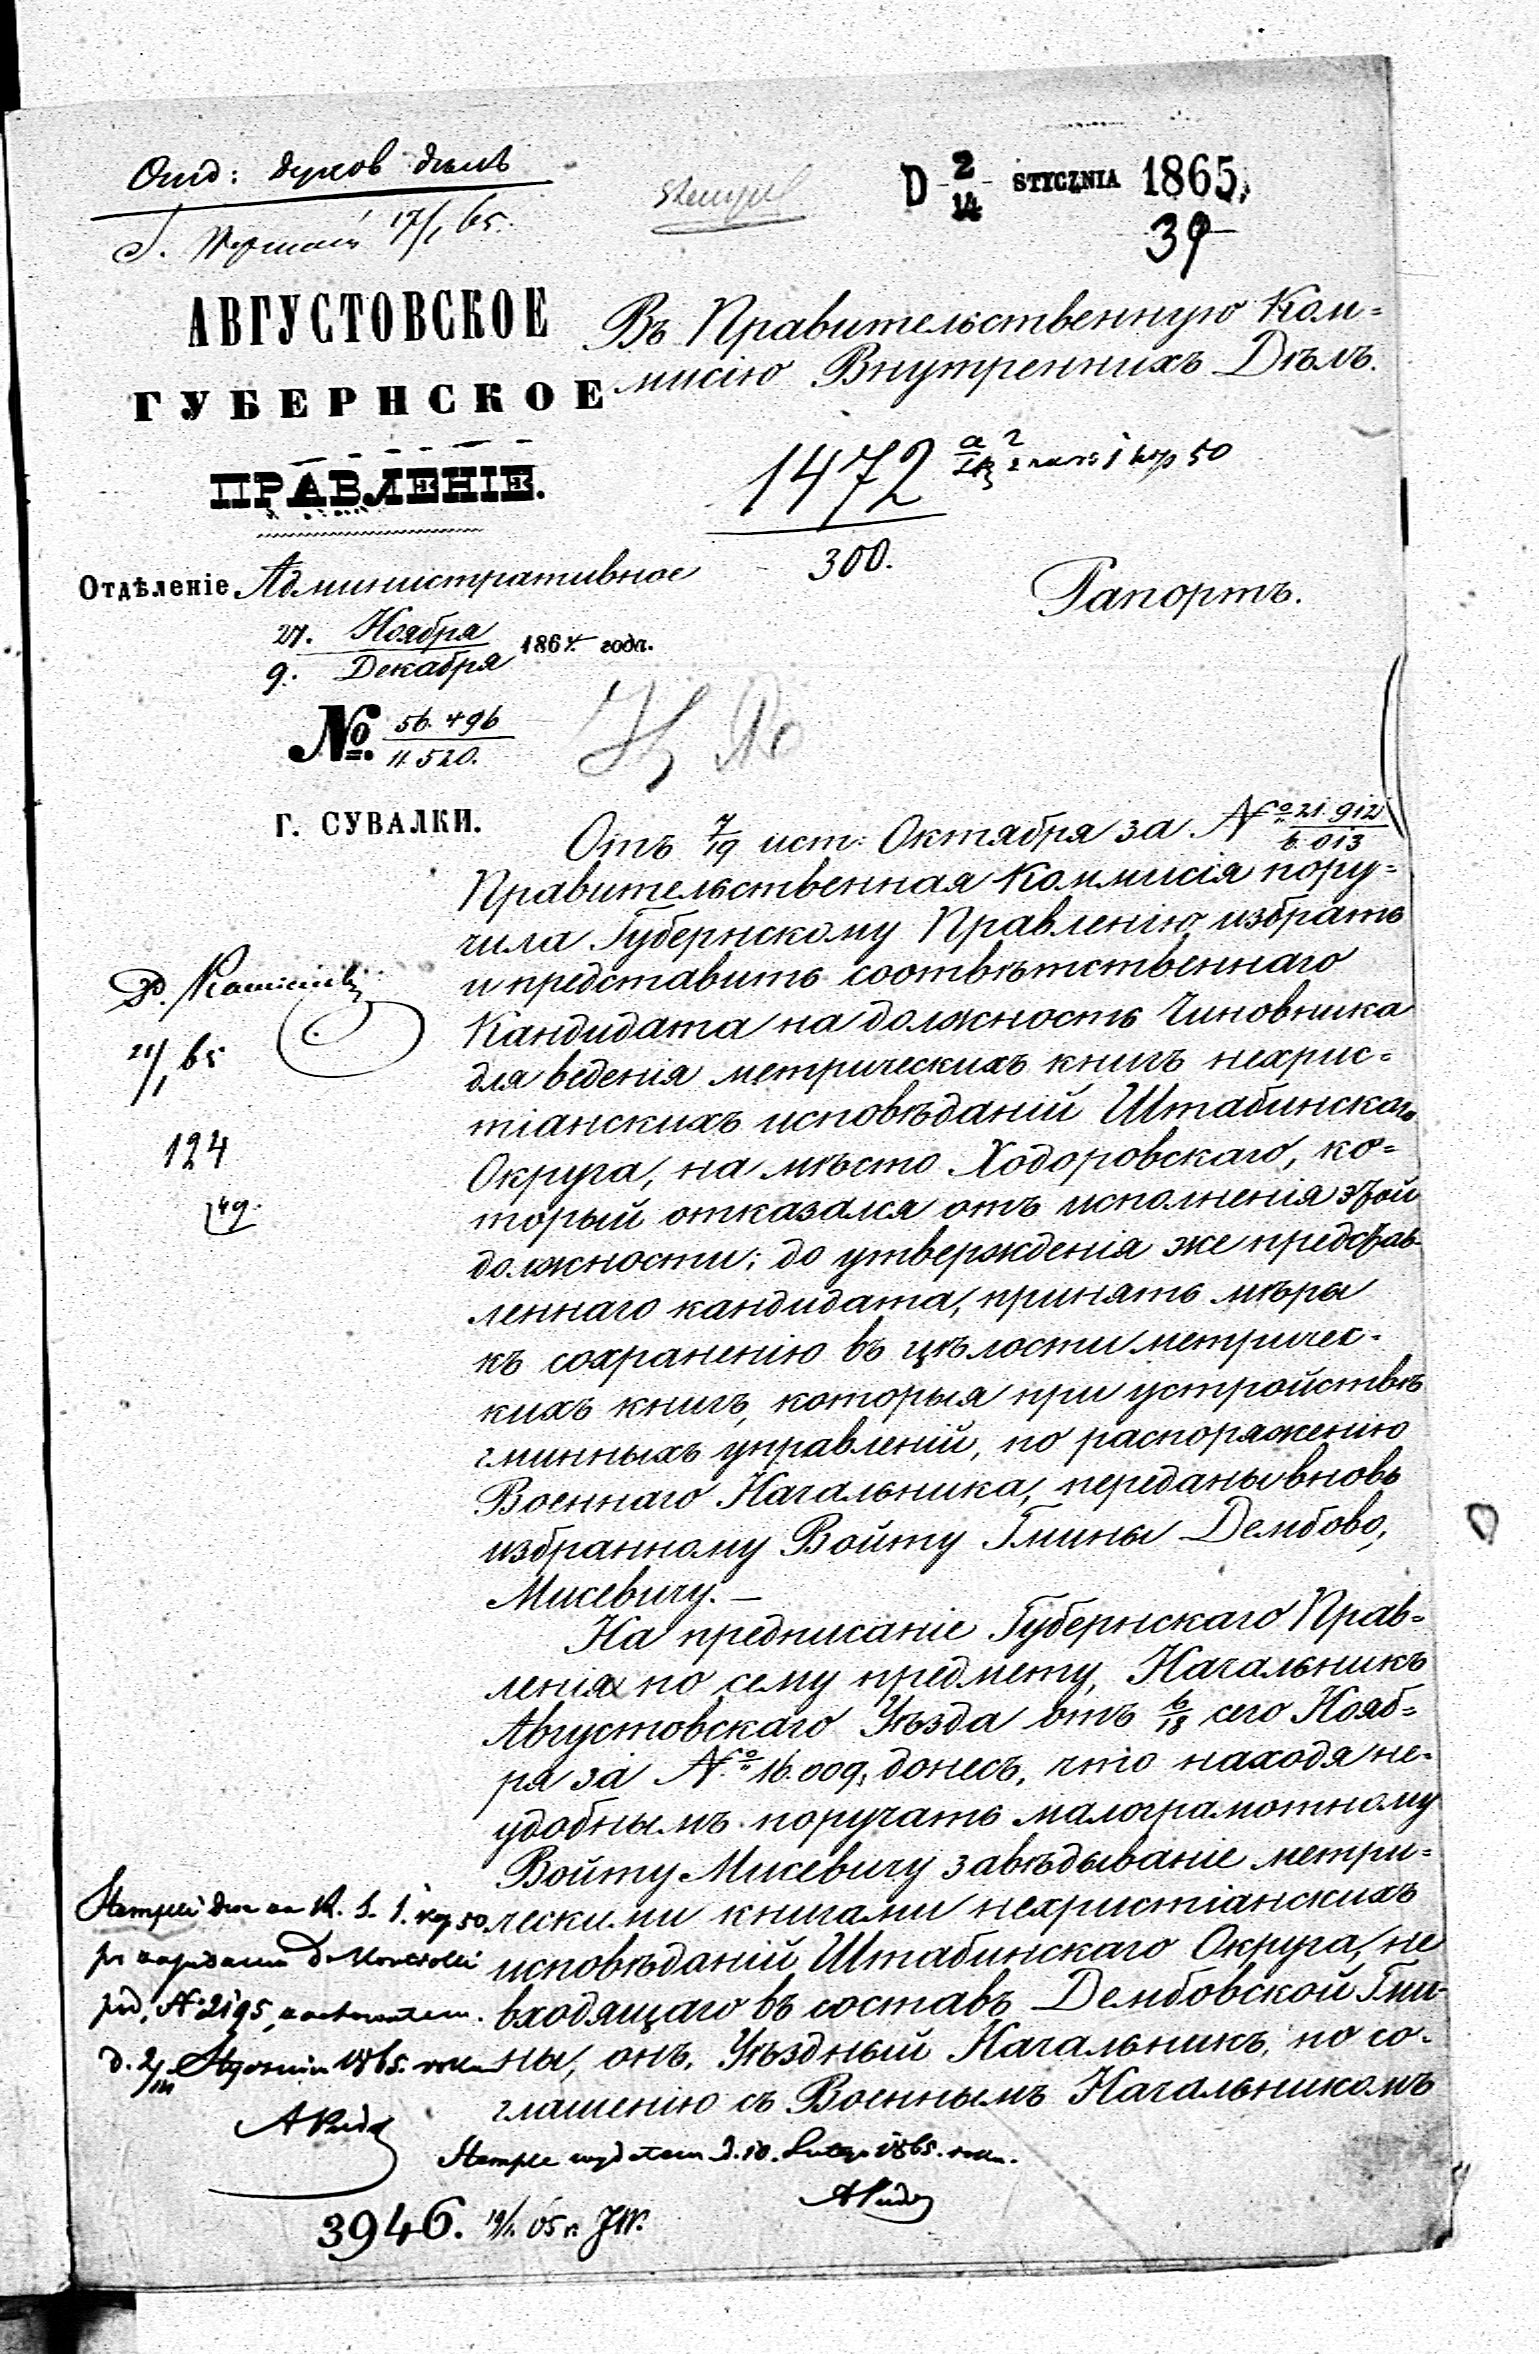 Отд: духов дѣлъ
17/1 65.
Stempel
D 2/14 STYCZNIA 1865.
39
АВГУСТОВСКОЕ
ГУБЕРНСКОЕ
ПРАВЛЕНІЕ.
Въ Правительственную Ком=
мисію Внутреннихъ Дѣлъ.
1472
1 kop 50
300.
Отдѣленіе Административное
27. Ноября
9. Декабря
1864 года.
№ 56.496
11.520.
Г. СУВАЛКИ.
Рапортъ.
Отъ 7/19 ист: Октября за № 21.912
6.013
Правительственная Коммисія пору=
чила Губернскому Правленію избрать
и представить соотвѣтственнаго
Кандидата на должность Чиновника
для веденія метрическихъ книгъ нехрис=
тіанскихъ исповѣданій Штабинскаго
Округа, на мѣсто Ходоровскаго, ко=
торый отказался отъ исполненія этой
должности; до утвержденія же представ-
леннаго кандидата, принять мѣры
къ сохраненію въ цѣлости метричес-
кихъ книгъ, которыя при устройствѣ
гминныхъ управленій, по распоряженію
Военнаго Начальника, переданы вновь
избранному Войту Гмины Дембово,
Мисевичу. —
На предписаніе Губернскаго Прав=
ленія по сему предмету, Начальникъ
Августовскаго Уѣзда отъ 6/18 сего Нояб=
ря за № 16.009, донесъ, что находя не=
удобнымъ поручать малограмотному
Войту Мисевичу завѣдываніе метри=
ческими книгами нехристіанскихъ
исповѣданій Штабинскаго Округа, не
входящаго въ составъ Дембовской Гми-
ны, онъ, Уѣздный Начальникъ, по со-
глашенію съ Военнымъ Начальникомъ
21/1 65
124
149.
Stempel na R. S. 1. kop 50
do Kontrolli
pod N 2195,
d. 2/14 Stycznia 1865. roku
Stemple wydałem d. 10. Lutego 1865. roku.
3946. 19/1 65 r. JW.